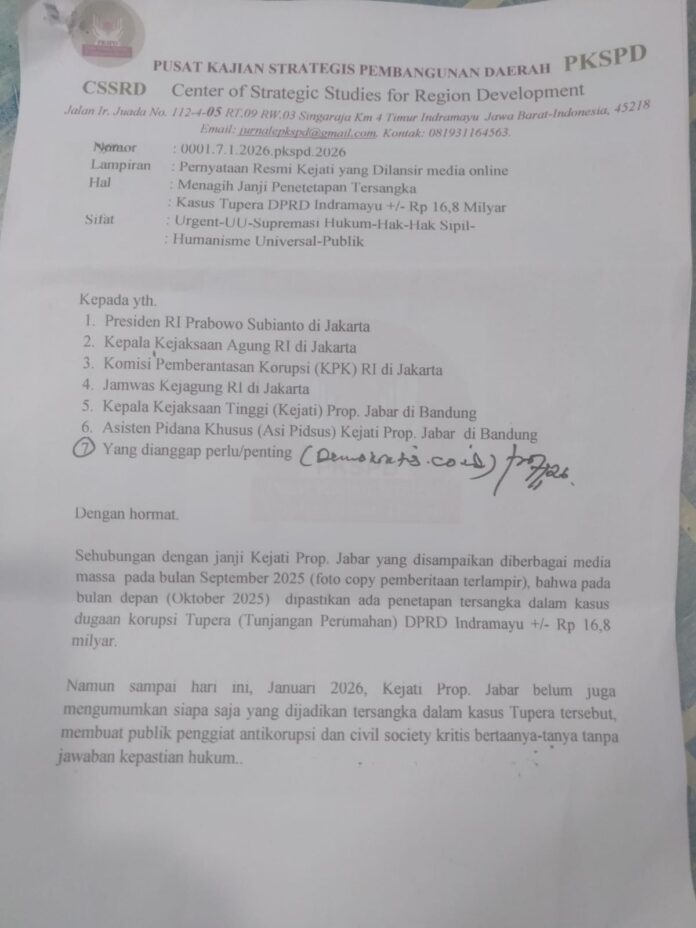 PKSPD
PUSAT KAJIAN STRATEGIS PEMBANGUNAN DAERAH PKSPD
CSSRD Center of Strategic Studies for Region Development
Jalan Ir. Juada No. 112-4-05 RT.09 RW.03 Singaraja Km 4 Timur Indramayu Jawa Barat-Indonesia, 45218
Email: jurnalepkspd@gmail.com. Kontak: 081931164563.
Nomor : 0001.7.1.2026.pkspd.2026
Lampiran : Pernyataan Resmi Kejati yang Dilansir media online
Hal : Menagih Janji Penetetapan Tersangka
: Kasus Tupera DPRD Indramayu +/- Rp 16,8 Milyar
Sifat : Urgent-UU-Supremasi Hukum-Hak-Hak Sipil-
: Humanisme Universal-Publik
Kepada yth.
1. Presiden RI Prabowo Subianto di Jakarta
2. Kepala Kejaksaan Agung RI di Jakarta
3. Komisi Pemberantasan Korupsi (KPK) RI di Jakarta
4. Jamwas Kejagung RI di Jakarta
5. Kepala Kejaksaan Tinggi (Kejati) Prop. Jabar di Bandung
6. Asisten Pidana Khusus (Asi Pidsus) Kejati Prop. Jabar di Bandung
7 Yang dianggap perlu/penting (Demokratis.co.id)
Dengan hormat.
Sehubungan dengan janji Kejati Prop. Jabar yang disampaikan diberbagai media
massa pada bulan September 2025 (foto copy pemberitaan terlampir), bahwa pada
bulan depan (Oktober 2025) dipastikan ada penetapan tersangka dalam kasus
dugaan korupsi Tupera (Tunjangan Perumahan) DPRD Indramayu +/- Rp 16,8
milyar.
Namun sampai hari ini, Januari 2026, Kejati Prop. Jabar belum juga
mengumumkan siapa saja yang dijadikan tersangka dalam kasus Tupera tersebut,
membuat publik penggiat antikorupsi dan civil society kritis bertaanya-tanya tanpa
jawaban kepastian hukum..